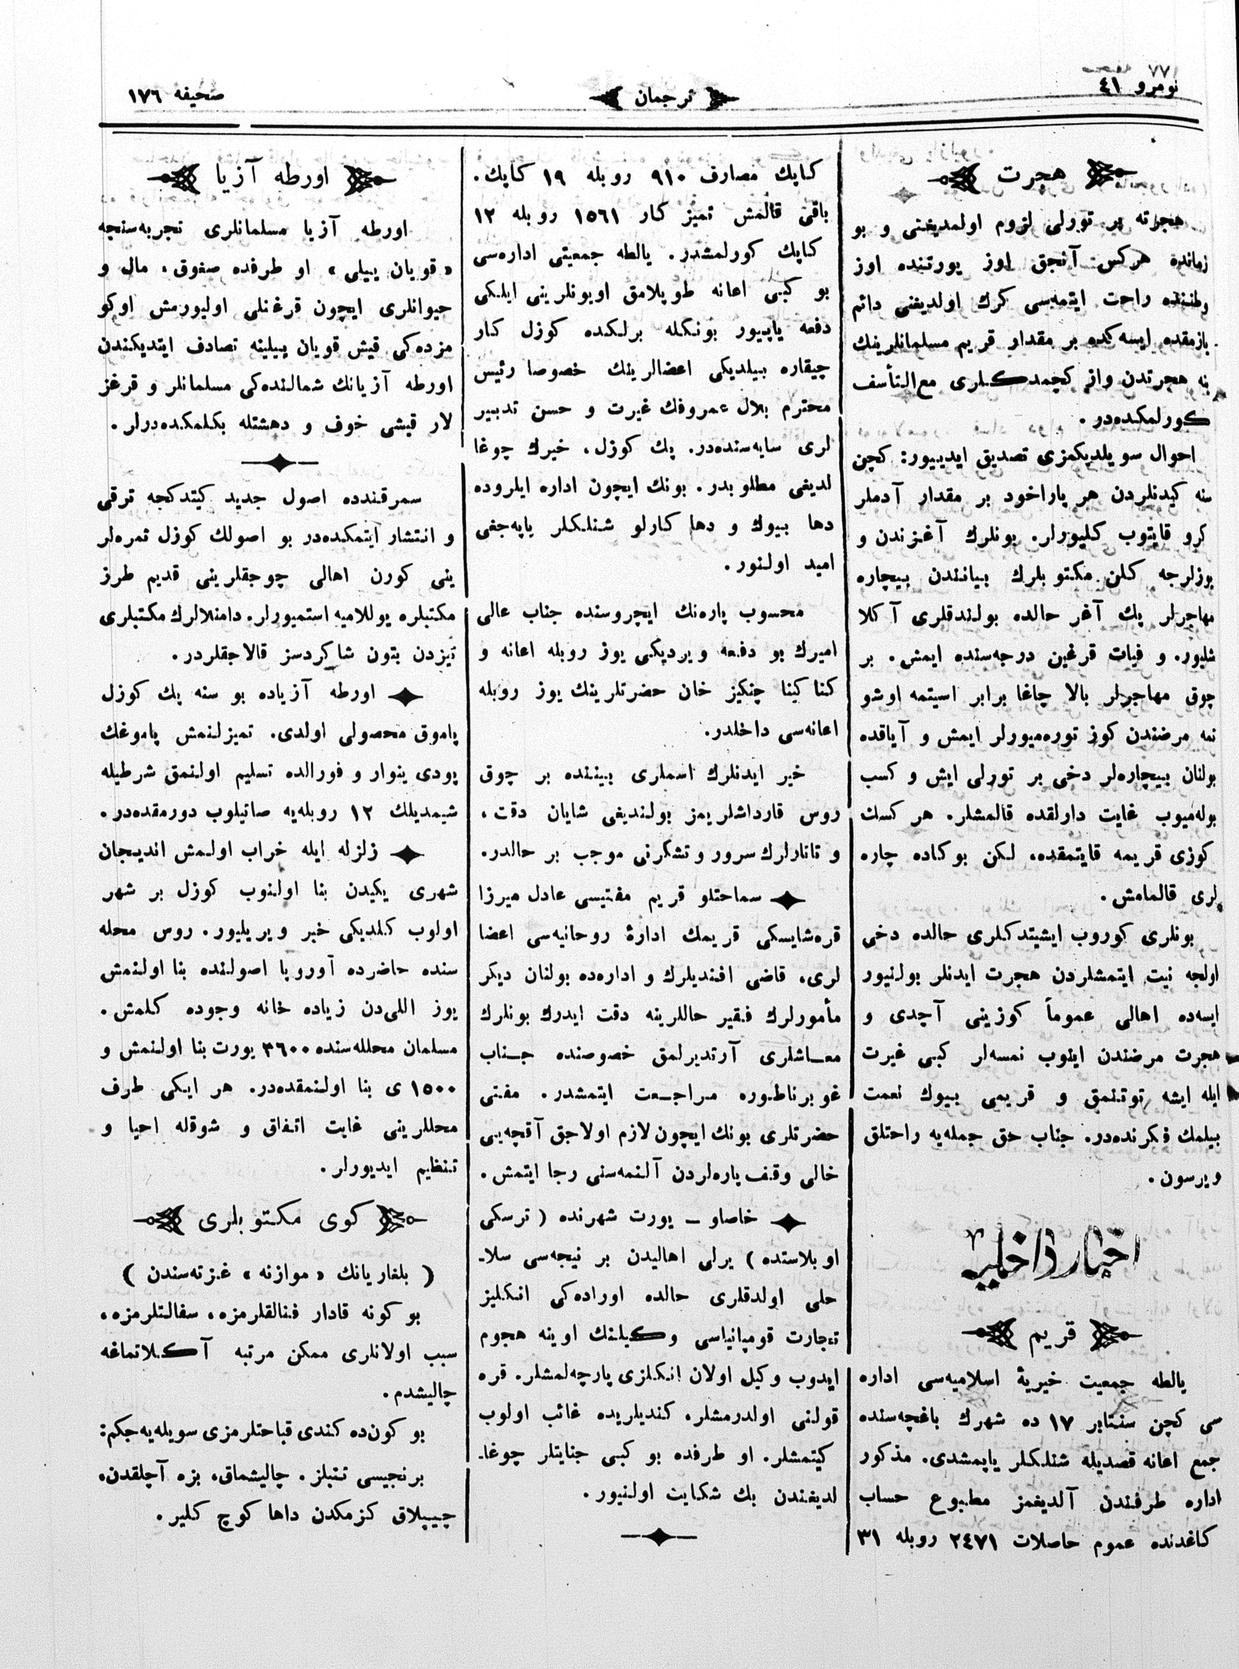 نومرو ٤١
ترجمان
صحیفه ١٧٦
هجرت
هجرته بر تورلی لزوم اولمدیغنی و بو
زمانده هركس آنجق اوز یورتنده اوز
وطننده راحت ایتمه‌سی كرك اولدیغی دائم
یازمقده ایسه‌كده بر مقدار قریم مسلمانلرینك
ینه هجرتدن واز كچمدكلری مع‌التأسف
كورلمكده‌در.
احوال سویلدیكمزی تصدیق ایدییور: كچن
سنه كیدنلردن هر پاراخود بر مقدار آدملر
كرو قایتوب كلیورلر. بونلرك آغزندن و
یوزلرجه كلن مكتوبلرك بیانندن بیچاره
مهاجرلر پك آغر حالده بولندقلری آكلا
شلیور. و فیات قرغین درجه‌سنده ایمش. بر
چوق مهاجرلر بالا چاغا برابر اسیتمه اوشو
تمه مرضندن كوز توره‌میورلر ایمش و آیاقده
بولنان بیچاره‌لر دخی بر تورلی ایش و كسب
بوله‌میوب غایت دارلقده قالمشلر. هر كسك
كوزی قریمه قایتمقده، لكن بوكاده چاره
لری قالمامش.
بونلری كوروب ایشیتدكلری حالده دخی
اولجه نیت ایتمشلردن هجرت ایدنلر بولنیور
ایسه‌ده اهالی عموماً كوزینی آچدی و
هجرت مرضندن اینوب نمسه‌لر كبی غیرت
ایله ایشه توتنمق و قریمی بیوك نعمت
بیلمك فكرنده‌در. جناب حق جمله‌یه راحتلق
ویرسون.
اخبار داخلیه
قریم
یالطه جمعیت خیریهٔ اسلامیه‌سی اداره
سی كچن سنتابر ١٧ ده شهرك باغچه‌سنده
جمع اعانه قصدیله شنلكلر یاپمشدی. مذكور
اداره طرفندن آلدیغمز مطبوع حساب
كاغدنده عموم حاصلات ٢٤٧١ روبله ٣١
كاپك مصارف ٩١٠ روبله ١٩ كاپك.
باقی قالمش تمیز كار ١٥٦١ روبله ١٢
كاپك كورلمشدر. یالطه جمعیتی اداره‌سی
بو كبی اعانه طوپلامق اویونلرینی ایلكی
دفعه یاپیور بونكله برلكده كوزل كار
چیقاره بیلدیكی اعضالرینك خصوصا رئیس
محترم بلال عمروفك غیرت و حسن تدبیر
لری سایه‌سنده‌در. پك كوزل، خیرك چوغا
لدیغی مطلوبدر. بونك ایچون اداره ایلروده
دها بیوك و دها كارلو شنلكلر یاپه‌جغی
امید اولنور.
محسوب پاره‌نك ایچروسنده جناب عالی
امیرك بو دفعه ویردیكی یوز روبله اعانه و
كناكینا چنكیز خان حضرتلرینك یوز روبله
اعانه‌سی داخلدر.
خیر ایدنلرك اسملری بیننده بر چوق
روس قارداشلریمز بولندیغی شایان دقت،
و تاتارلرك سرور و تشكرنی موجب بر حالدر.
سماحتلو قریم مفتیسی عادل میرزا
قره‌شایسكی قریمك ادارهٔ روحانیه‌سی اعضا
لری، قاضی افندیلرك و اداره‌ده بولنان دیكر
مأمورلرك فقیر حاللرینه دقت ایدرك بونلرك
معاشلری آرتدیرلمق خصوصنده جناب
غوبرناطوره مراجعت ایتمشدر. مفتی
حضرتلری بونك ایچون لازم اولاجق آقچه‌یی
خالی وقف پاره‌لردن آلنمه‌سنی رجا ایتمش.
خاصاو ــ یورت شهرنده ( ترسكی
اوبلاستده ) یرلی اهالیدن بر نیجه‌سی سلا-
حلی اولدقلری حالده اوراده‌كی انكلیز
تجارت قومپانیاسی وكیلنك اوینه هجوم
ایدوب وكیل اولان انكلزی پارچه‌لمشلر. قره
قولنی اولدرمشلر، كندیلریده غائب اولوب
كیتمشلر. او طرفده بو كبی جنایتلر چوغا-
لدیغندن بك شكایت اولنیور.
اورطه آزیا
اورطه آزیا مسلمانلری تجربه‌سنجه
«قویان ییلی» او طرفده صغوق، مال و
حیوانلری ایچون قرغنلی اولیورمش اوكو
مزده‌كی قیش قویان ییلینه تصادف ایتدیكندن
اورطه آزیانك شمالنده‌كی مسلمانلر و قرغز
لار قیشی خوف و دهشتله بكلمكده‌درلر.
سمرقندده اصول جدید كیتدكجه ترقی
و انتشار ایتمكده‌در بو اصولك كوزل ثمره‌لر
ینی كورن اهالی چوجقلرینی قدیم طرز
مكتبلره یوللامیه استمیورلر. دامنلالرك مكتبلری
تیزدن بتون شاكردسز قالاجقلردر.
اورطه آزیاده بو سنه پك كوزل
پاموق محصولی اولدی. تمیزلنمش پاموغك
پودی ینوار و فورالده تسلیم اولنمق شرطیله
شیمدیلك ١٢ روبله‌یه صاتیلوب دورمقده‌در.
زلزله ایله خراب اولمش اندیجان
شهری یكیدن بنا اولنوب كوزل بر شهر
اولوب كلدیكی خبر ویریلیور. روس محله
سنده حاضرده آوروپا اصولنده بنا اولنمش
یوز اللی‌دن زیاده خانه وجوده كلمش.
مسلمان محلله‌سنده ٣٦٠٠ یورت بنا اولنمش و
١٥٠٠ ی بنا اولنمقده‌در. هر ایكی طرف
محللرینی غایت اتفاق و شوقله احیا و
تنظیم ایدیورلر.
كوی مكتوبلری
( بلغاریانك «موازنه» غزته‌سندن )
بو كونه قادار فنالقلرمزه، سفالتلرمزه،
سبب اولانلری ممكن مرتبه آكلاتماغه
چالیشدم.
بو كون‌ده كندی قباحتلرمزی سویله‌یه‌جكم:
برنجیسی تنبلز. چالیشماق، بزه آچلقدن،
چیپلاق كزمكدن داها كوچ كلیر.